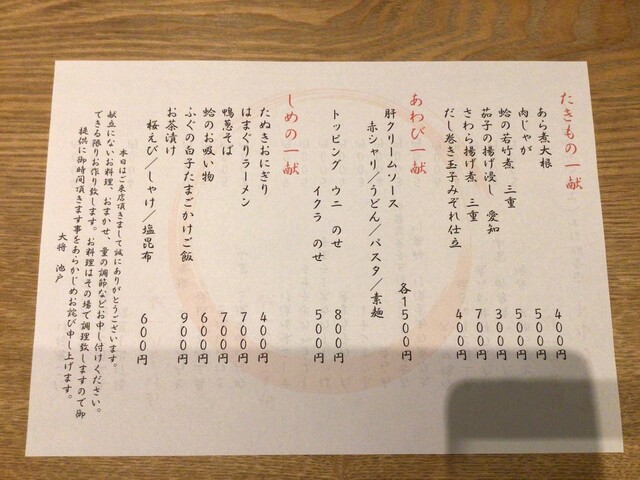 たきもの一献
あら煮大根 400円
肉じゃが 500円
蛤の若竹煮 三重 500円
茄子の揚げ浸し 愛知 300円
さわら揚げ煮 三重 700円
だし巻き玉子みぞれ仕立 400円
あわび一献
肝クリームソース
赤シャリ/うどん/パスタ/素麺 各1500円
トッピング ウニ のせ 800円
イクラ のせ 500円
しめの一献
たぬきおにぎり 400円
はまぐりラーメン 700円
鴨葱そば 700円
蛤のお吸い物 600円
ふぐの白子たまごかけご飯 900円
お茶漬け
桜えび/しゃけ/塩昆布 600円
本日はご来店頂きまして誠にありがとうございます。
献立にないお料理、おまかせ、量の調節などお申し付けください。
できる限りお作り致します。お料理はその場で調理致しますので御
提供に御時間頂きます事をあらかじめお詫び申し上げます。
大将 池戸